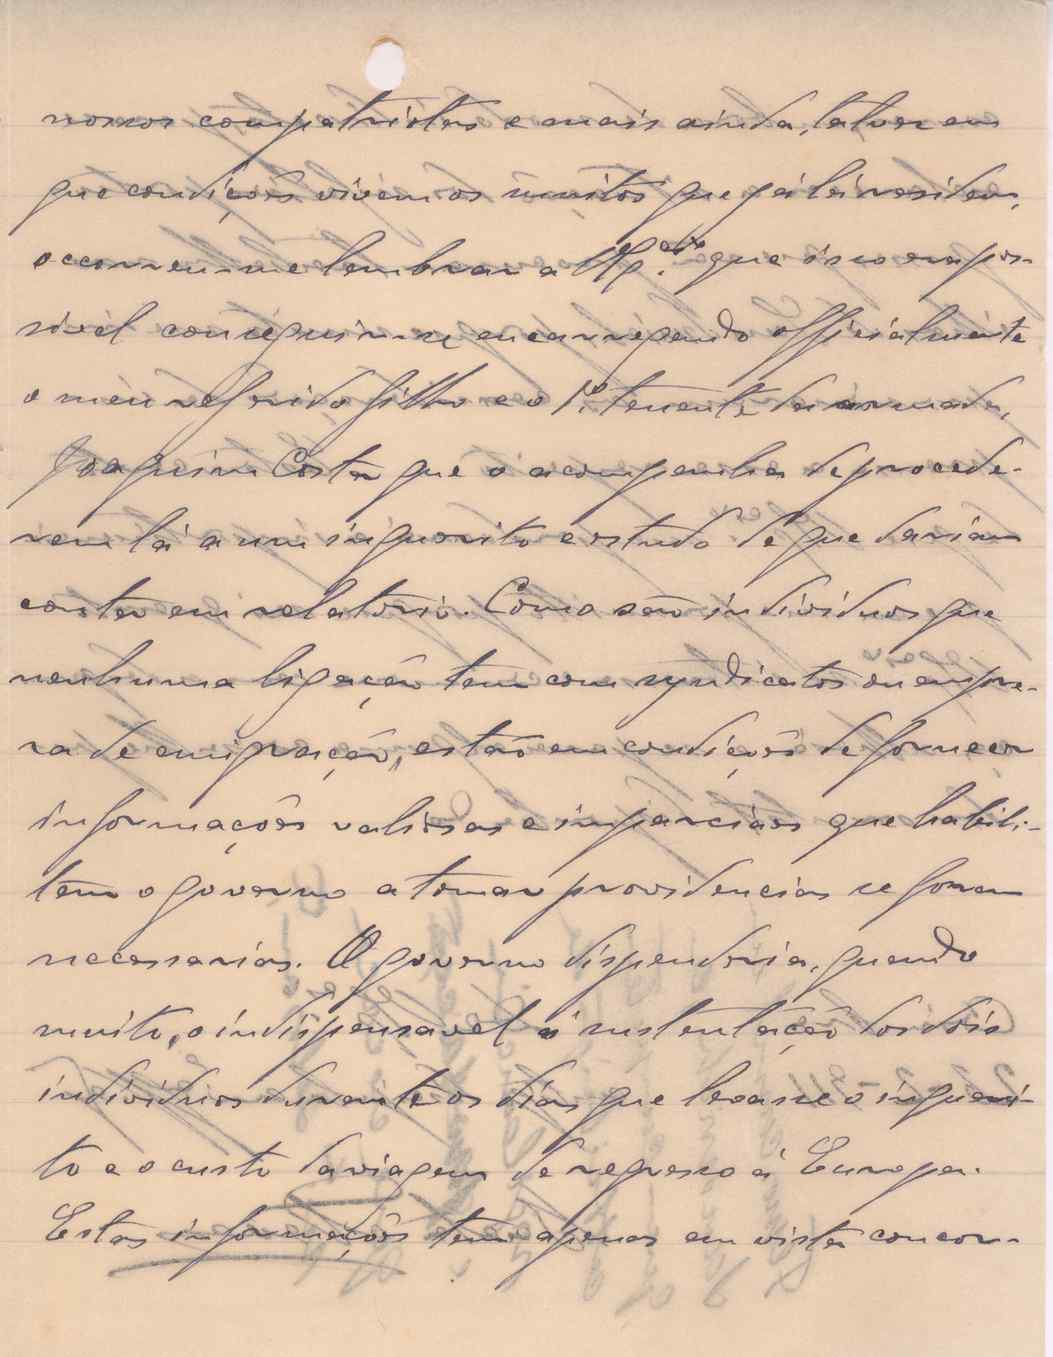 nossos compatriotas e mais ainda, talvez em
que condições vivem os muitos que já lá residem,
occorreu-me lembrar a V. Ex.ª que isso era pos-
sivel conseguir-se encarregando officialmente
o meu referido filho e o 1º tenente da armada,
Joaquim Costa que o acompanha de procede-
rem lá a um inquerito e estudo de que dariam
conta em relatorio. Como são individuos que
nenhuma ligação tem com syndicatos ou empre-
za de emigração, estão em condições de fornecer
informações valiosas e imparciaes que habili-
tem o governo a tomar providencias se forem
necessarias. O governo dispenderia, quando
muito, o indispensavel á sustentação dos dois
individuos durante os dias que levasse o inqueri-
to e o custo da viagem de regresso á Europa.
Estas informações tem apenas em vista concor-